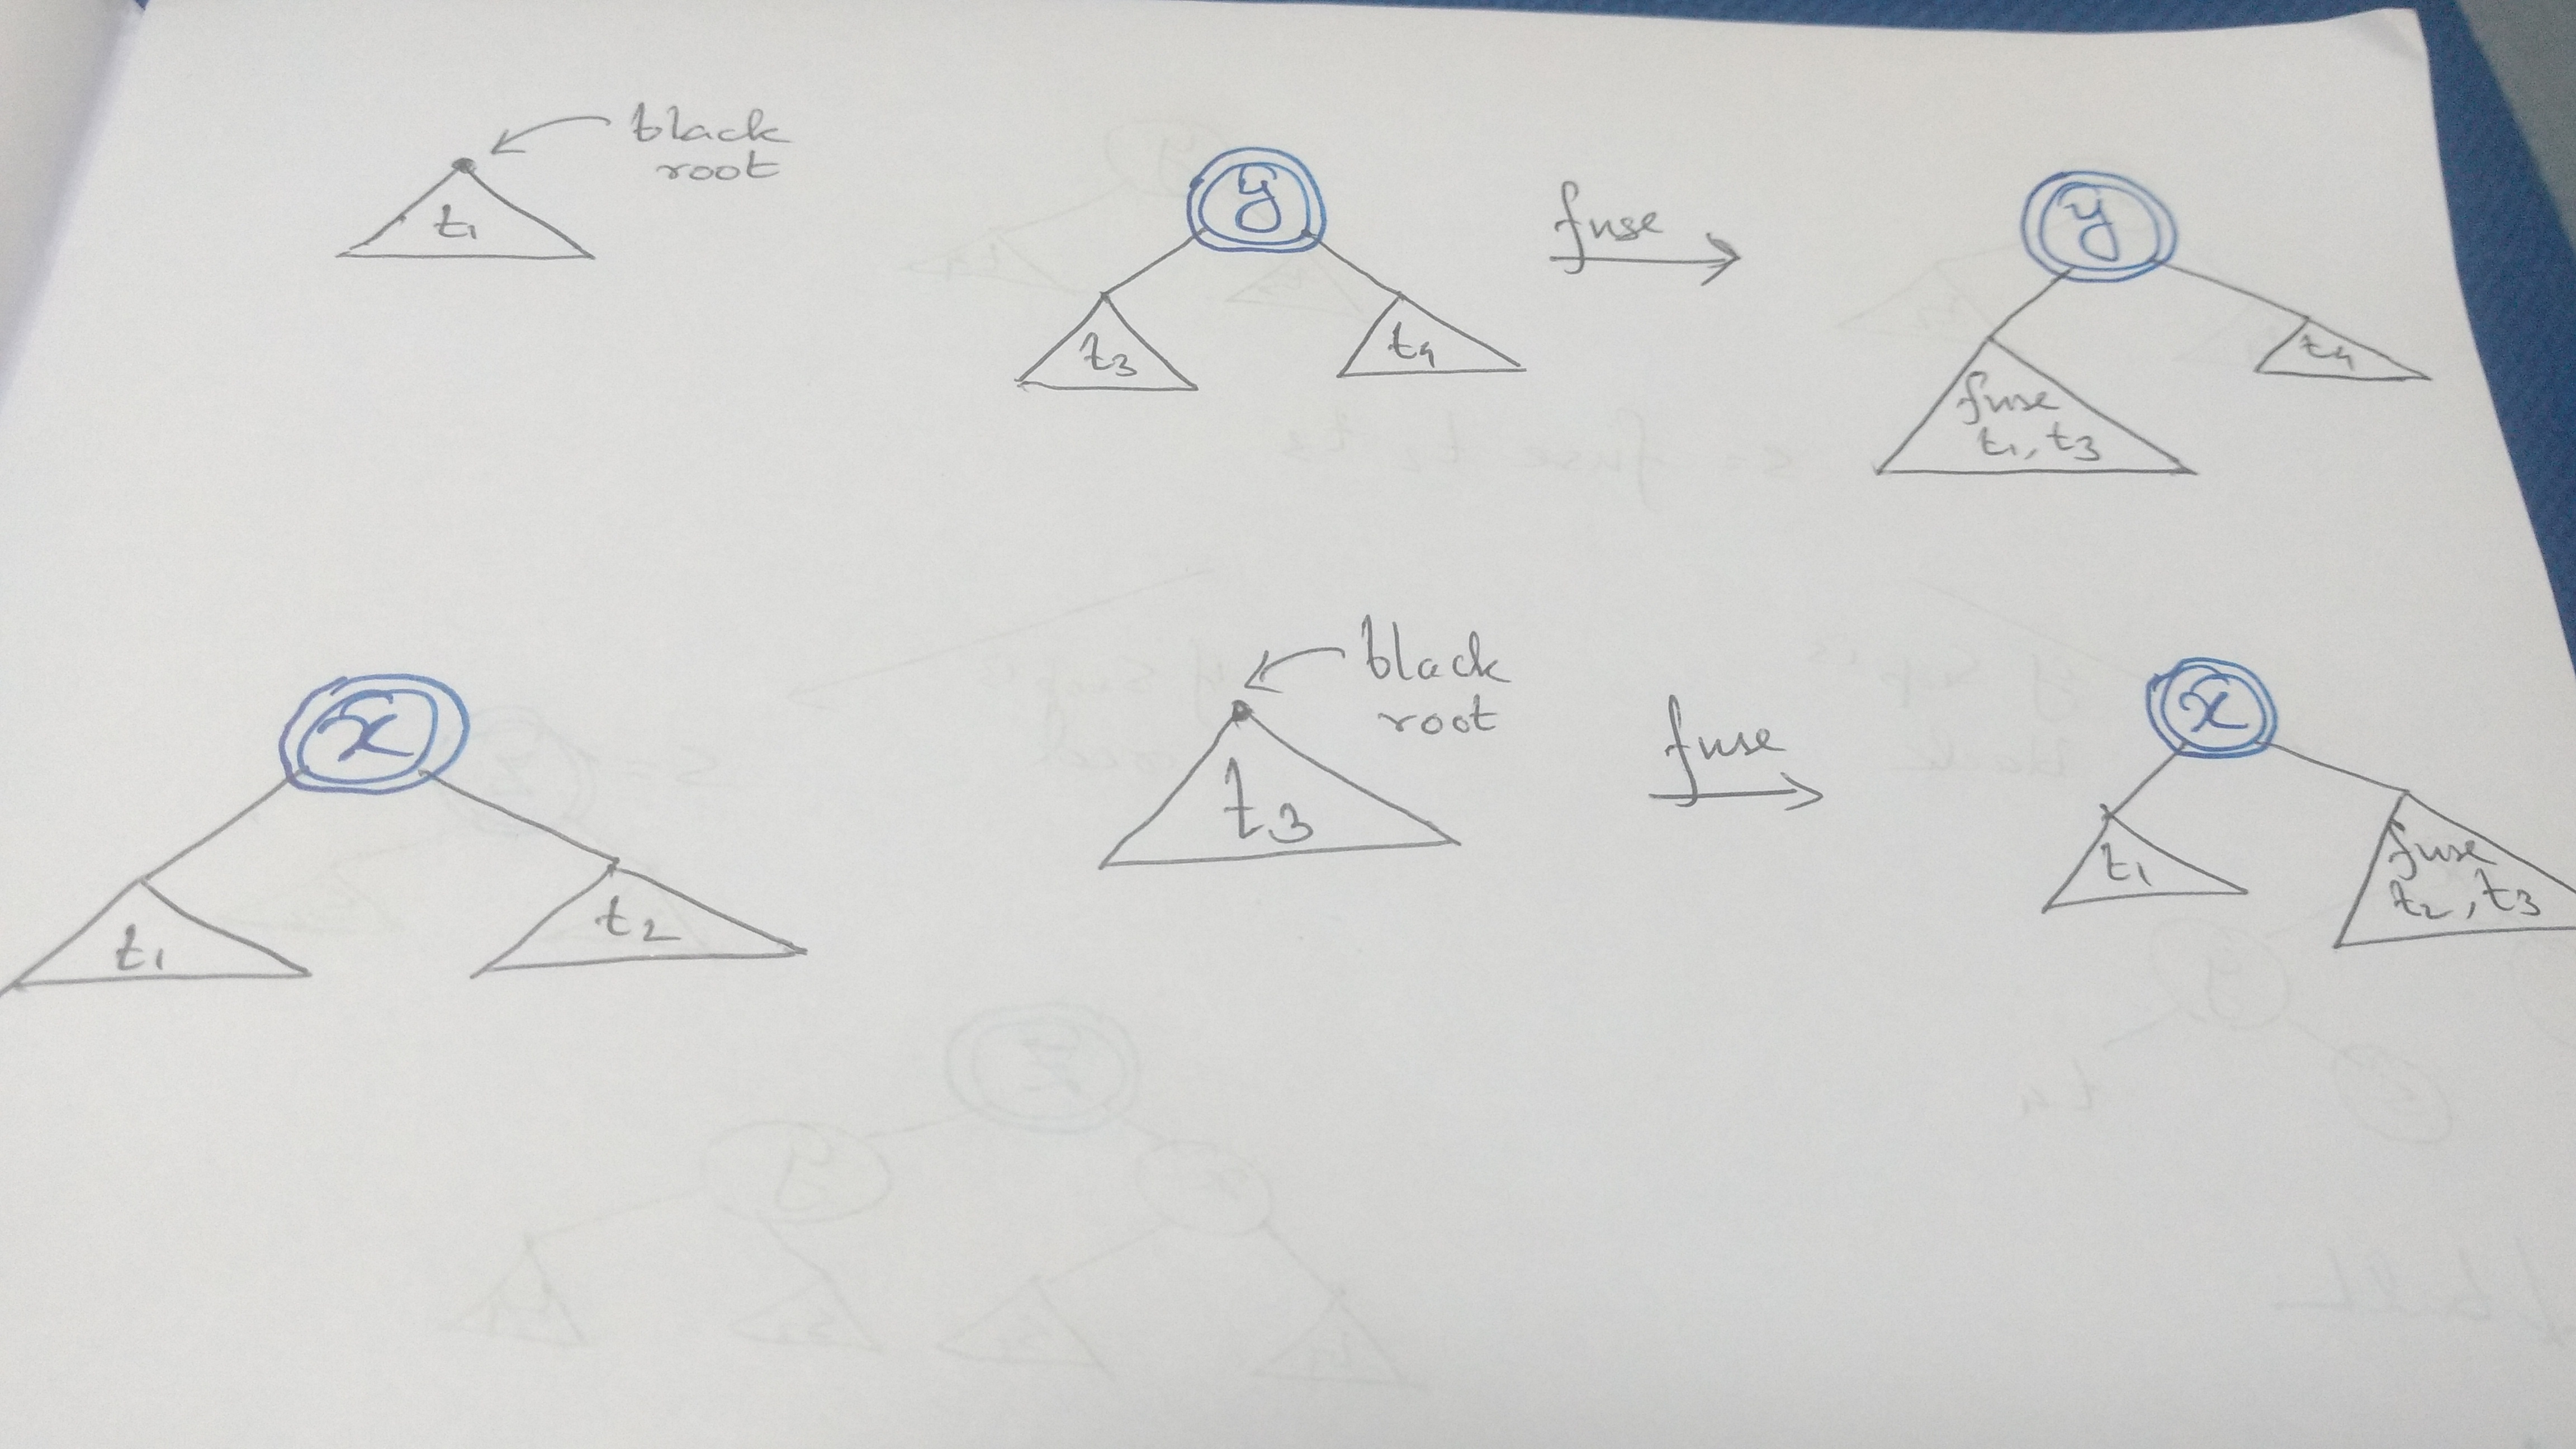 black
root
t₁
y
t₃
t₄
fuse
y
fuse
t₁, t₃
t₄
x
t₁
t₂
black
root
t₃
fuse
x
t₁
fuse
t₂, t₃